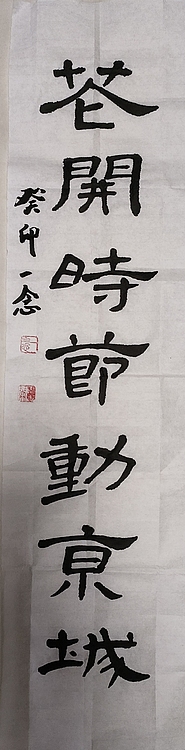 花開時節動京城
癸卯一念